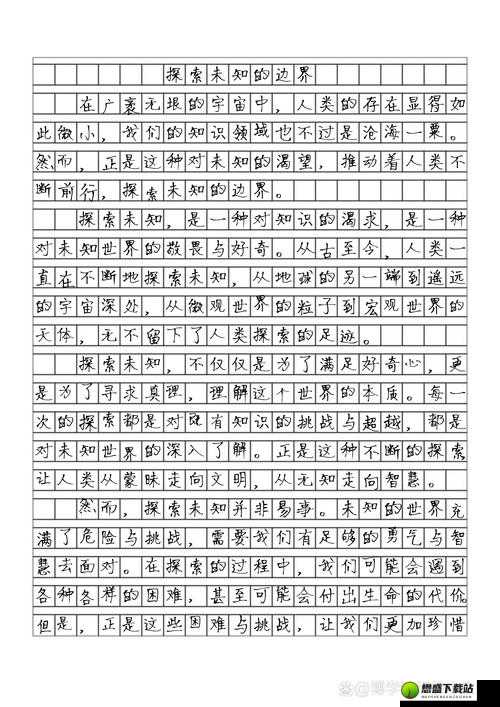 探索未知的边界
在广袤无垠的宇宙中，人类的存在显得如
此微小，我们的知识领域也不过是沧海一粟。
然而，正是这种对未知的渴望，推动着人类不
断前行，探索未知的边界。
探索未知，是一种对知识的渴求，是一种
对未知世界的敬畏与好奇。从古至今，人类一
直在不断地探索未知，从地球的另一端到遥远
的宇宙深处，从微观世界的粒子到宏观世界的
天体，无不留下了人类探索的足迹。
探索未知，不仅仅是为了满足好奇心，更
是为了寻求真理，理解这个世界的本质。每一
次的探索都是对既有知识的挑战与超越，都是
对未知世界的深入了解。正是这种不断的探索
让人类从蒙昧走向文明，从无知走向智慧。
然而，探索未知并非易事。未知的世界充
满了危险与挑战，需要我们有足够的勇气与智
慧去面对。在探索的过程中，我们可能会遇到
各种各样的困难，甚至可能会付出生命的代价。
但是，正是这些困难与挑战，让我们更加珍惜
懋盛下载站